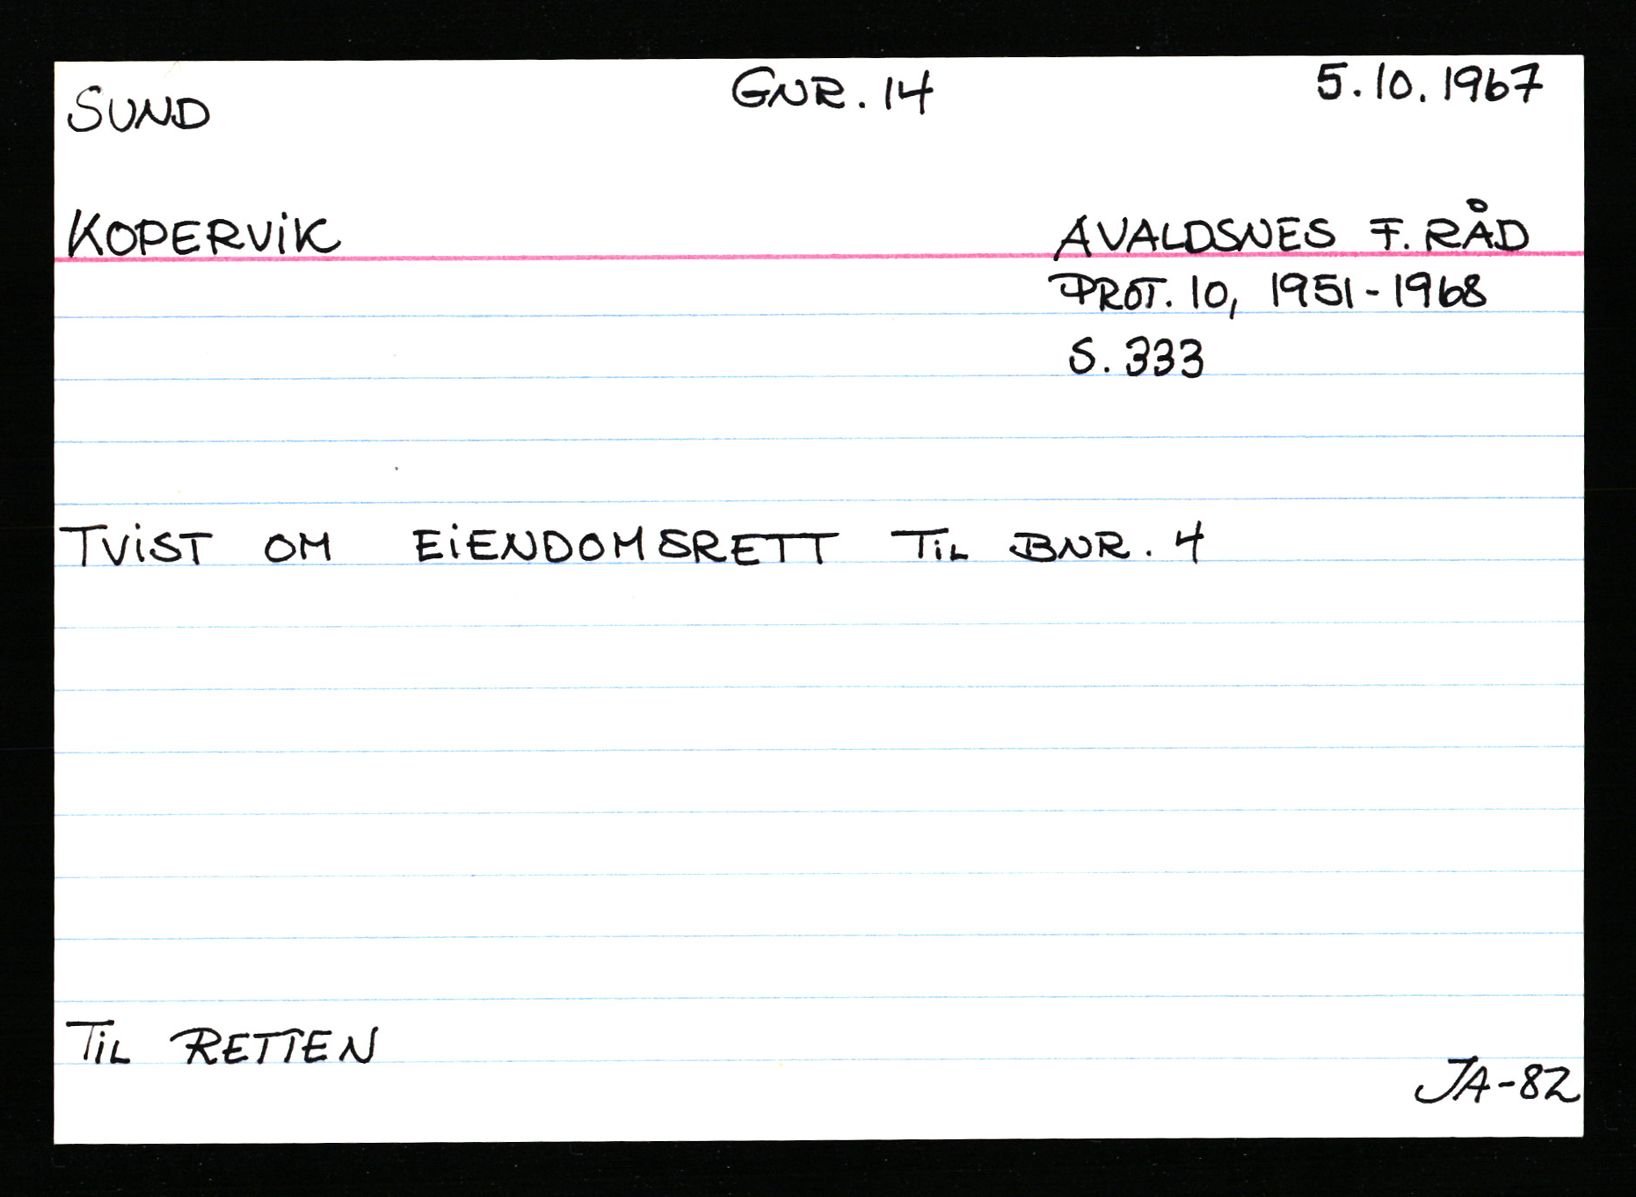 SUND GNR. 14 5.10.1967
KOPERVIK AVALDSNES F. RÅD
PROT. 10, 1951-1968
S. 333
TVIST OM EIENDOMSRETT TIL BNR. 4
TIL RETTEN
JA-82